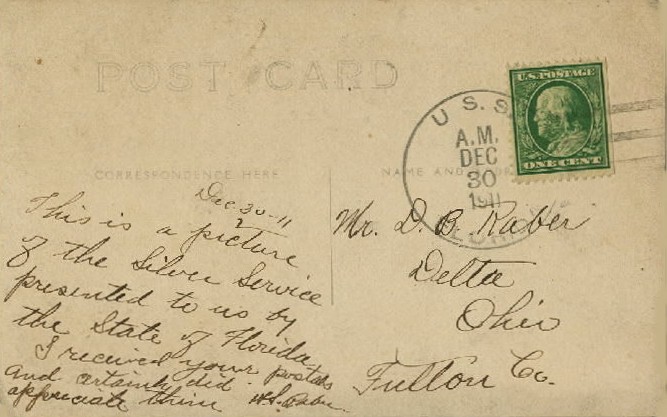 POST CARD
U.S.S.
A.M.
DEC
30
1911
U.S. POSTAGE
ONE CENT
CORRESPONDENCE HERE
NAME AND
Dec-30-11
This is a picture
of the Silver Service
presented to us by
the State of Florida
I received your postals
and certainly did
appreciate them
Mr. D. B. Raber
Delta
Ohio
Fulton Co.